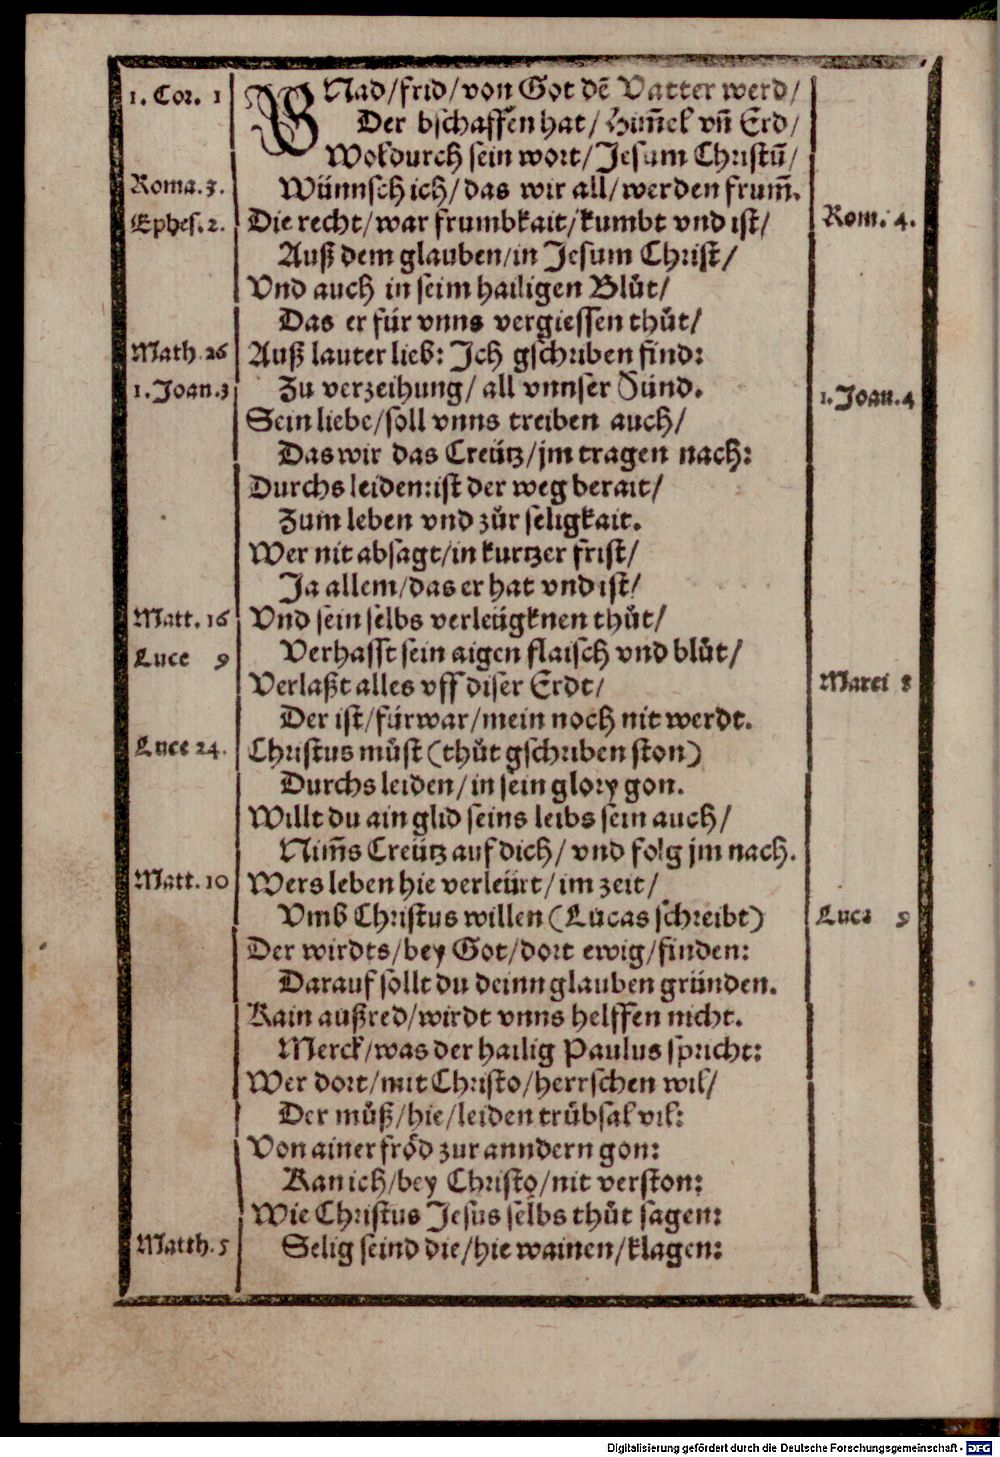 1. Cor. 1
GNad/frid/von Got dẽ Vatter werd/
Der bschaffen hat/Him̃el vñ Erd/
Wol durch sein wort/Jesum Christũ/
Roma. 3.
Wünnsch ich/das wir all/werden frum̃.
Ephes. 2.
Die recht/war frumbkait/kumbt vnd ist/
Rom. 4.
Auß dem glauben/in Jesum Christ/
Vnd auch in seim hailigen Blůt/
Das er für vnns vergiessen thůt/
Math. 26
Auß lauter lieb: Ich gschriben find:
1. Joan. 3
Zu verzeihung/ all vnnser Sünd.
1. Joan. 4
Sein liebe/soll vnns treiben auch/
Das wir das Creütz/jm tragen nach:
Durchs leiden: ist der weg berait/
Zum leben vnd zůr seligkait.
Wer nit absagt/in kurtzer frist/
Ja allem/das er hat vnd ist/
Matt. 16
Vnd sein selbs verleügknen thůt/
Luce 9
Verhasst sein aigen flaisch vnd blůt/
Verlaßt alles vff diser Erdt/
Marci 8
Der ist/fürwar/mein noch nit werdt.
Luce 24.
Christus můst (thůt gschriben ston)
Durchs leiden/in sein glory gon.
Willt du ain glid seins leibs sein auch/
Nim̃s Creütz auf dich/ vnd folg jm nach.
Matt. 10
Wers leben hie verleürt/im zeit/
Vmb Christus willen (Lucas schreibt)
Luce 9
Der wirdts/bey Got/dort ewig/finden:
Darauf sollt du deinn glauben gründen.
Kain außred/wirdt vnns helffen nicht.
Merck/was der hailig Paulus spricht:
Wer dort/mit Christo/herrschen wil/
Der můß/hie/leiden trůbsal vil:
Von ainer frőd zur anndern gon:
Kan ich/bey Christo/nit verston:
Wie Christus Jesus selbs thůt sagen:
Matth. 5
Selig seind die/hie wainen/klagen:
Digitalisierung gefördert durch die Deutsche Forschungsgemeinschaft - DFG